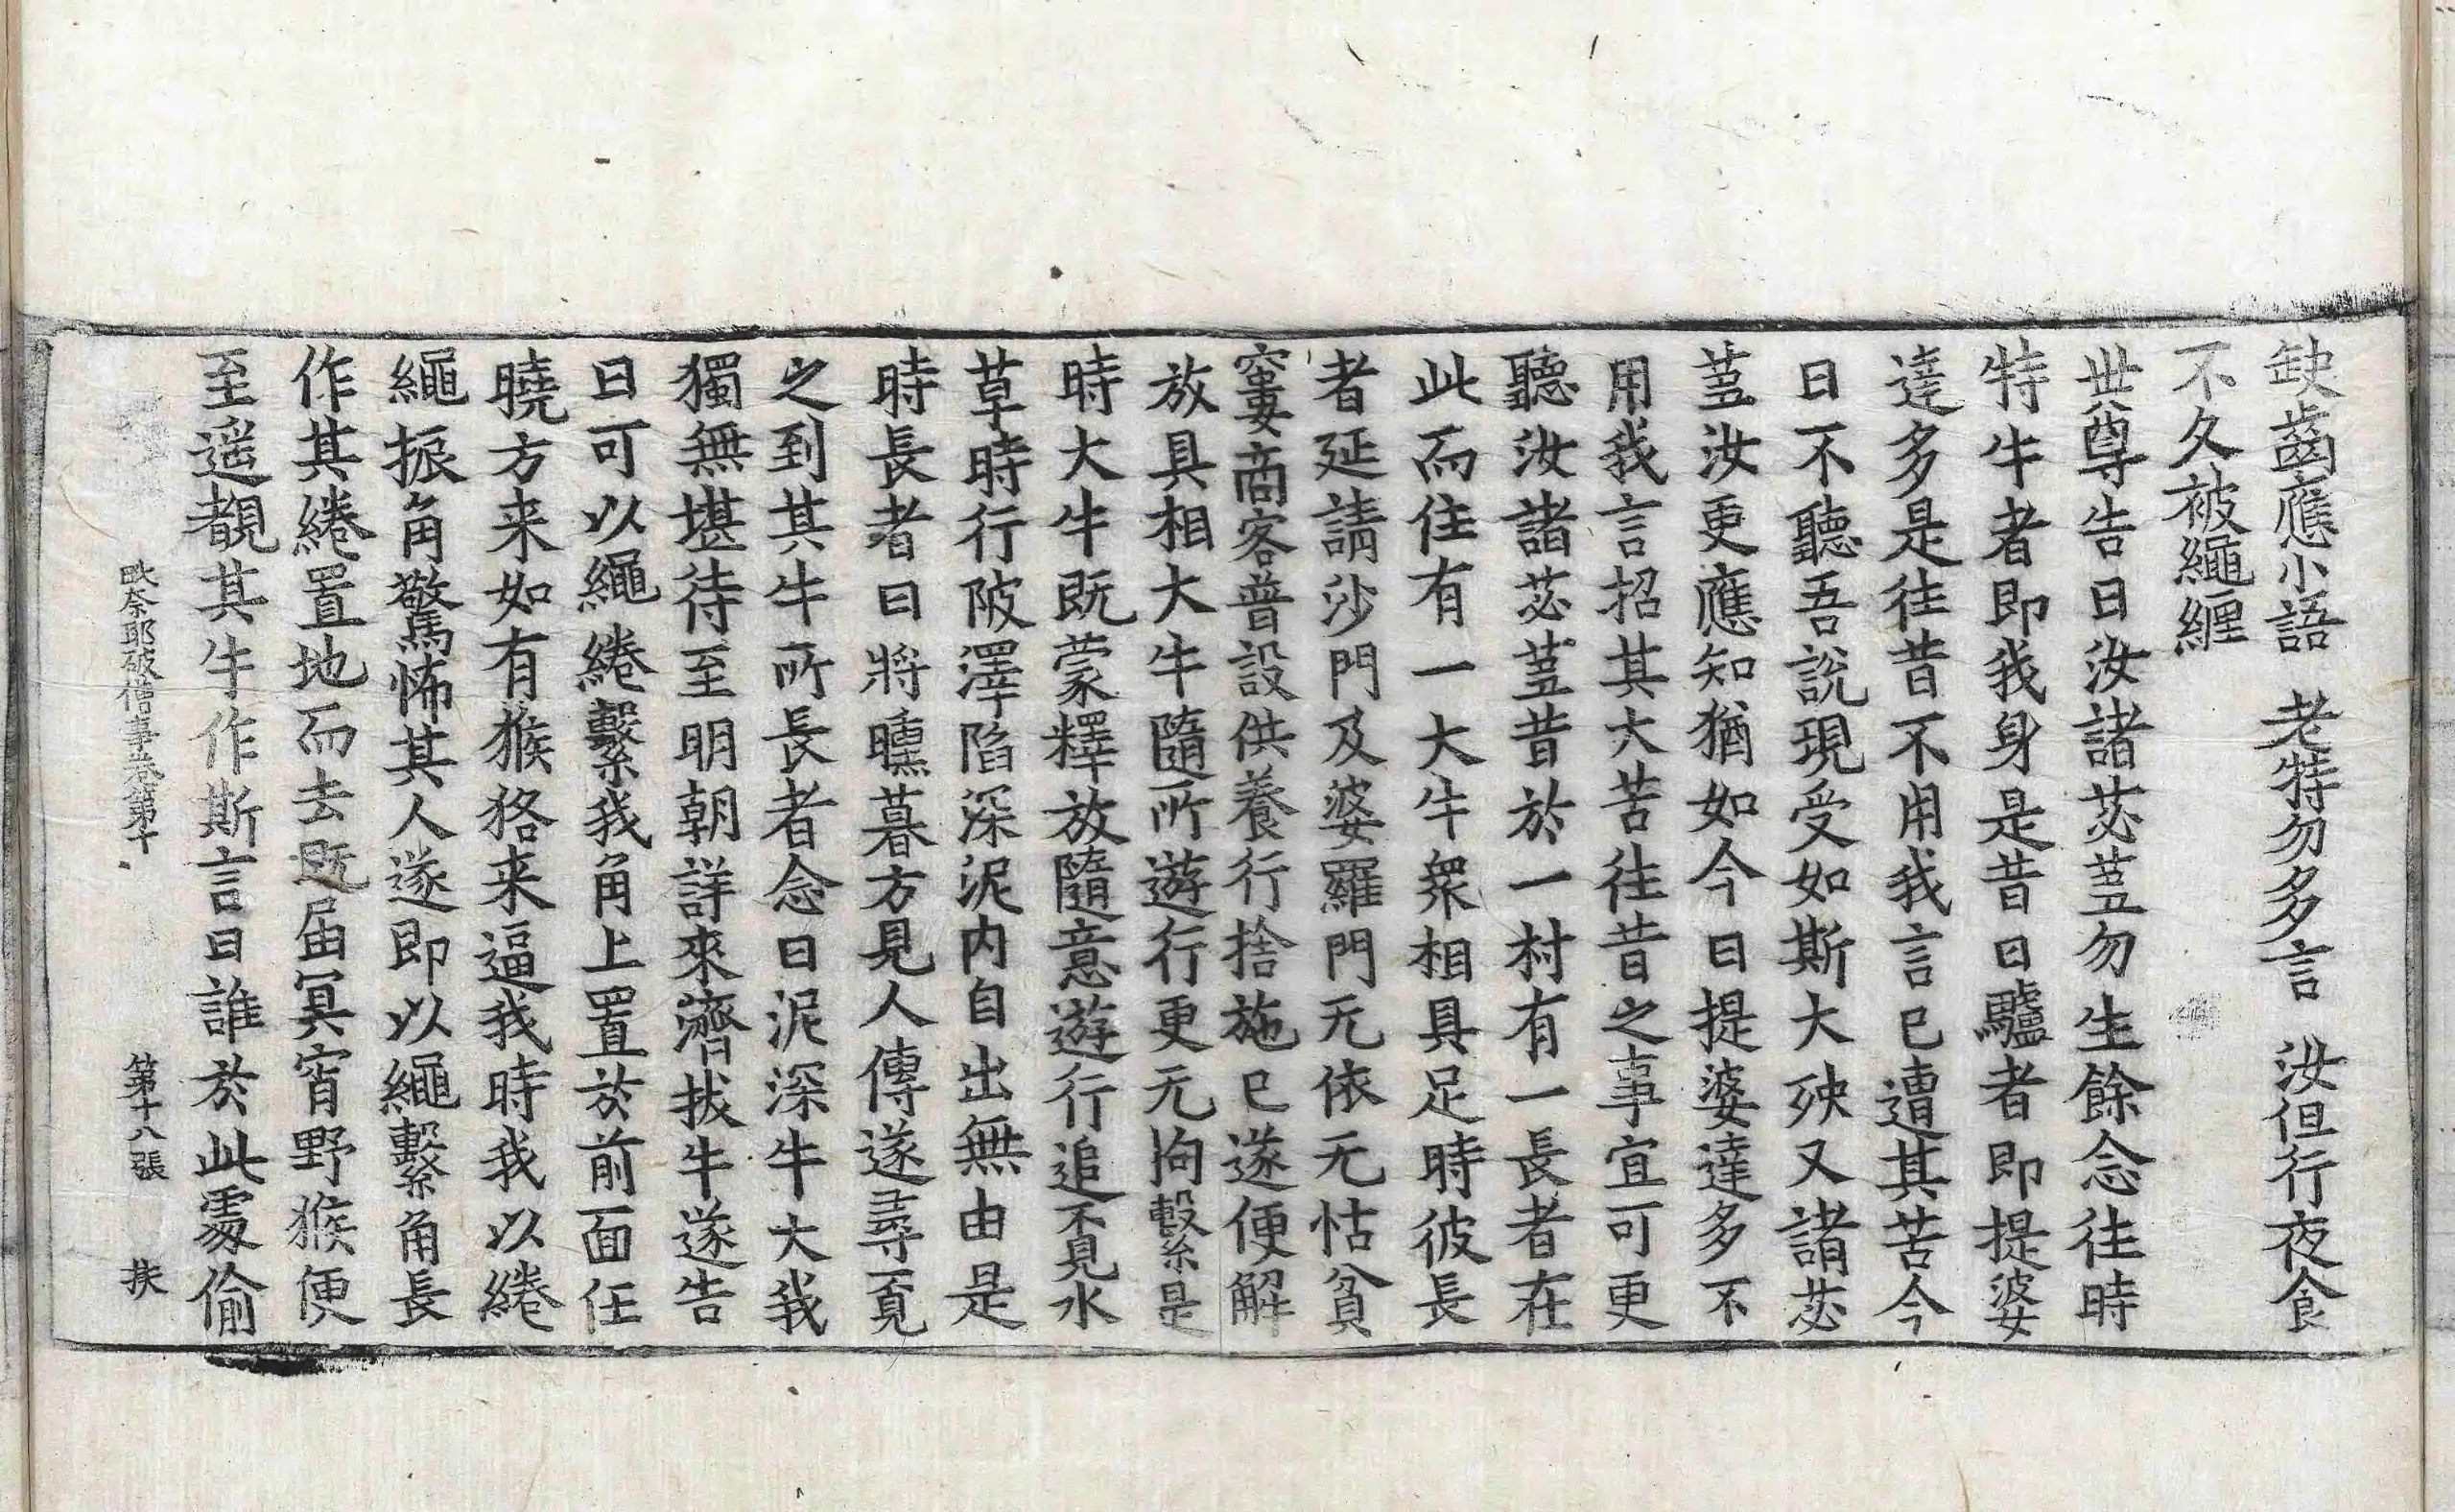 缺齒應小語　老特勿多言　汝但行夜食
不久被繩纏
世尊告曰汝諸苾蒭勿生餘念往時
特牛者即我身是昔日驢者即提婆
達多是往昔不用我言已遭其苦今
日不聽吾說現受如斯大殃又諸苾
蒭汝更應知猶如今日提婆達多不
用我言招其大苦往昔之事宜可更
聽汝諸苾蒭昔於一村有一長者在
此而住有一大牛衆相具足時彼長
者延請沙門及婆羅門无依无怙貧
窶商客普設供養行捨施已遂便解
放具相大牛隨所遊行更无拘繫是
時大牛既蒙釋放隨意遊行追不見水
草時行陂澤陷深泥内自出無由是
時長者日將曛暮方見人傳遂尋覓
之到其牛所長者念曰泥深牛大我
獨無堪待至明朝詳來濟拔牛遂告
曰可以繩綣繫我角上置於前面任
曉方来如有猴狢来逼我時我以綣
繩振角驚怖其人遂即以繩繫角長
作其綣置地而去既届冥宵野猴便
至遥覩其牛作斯言曰誰於此處偷
奈耶破僧事卷第十　第十八張　扶